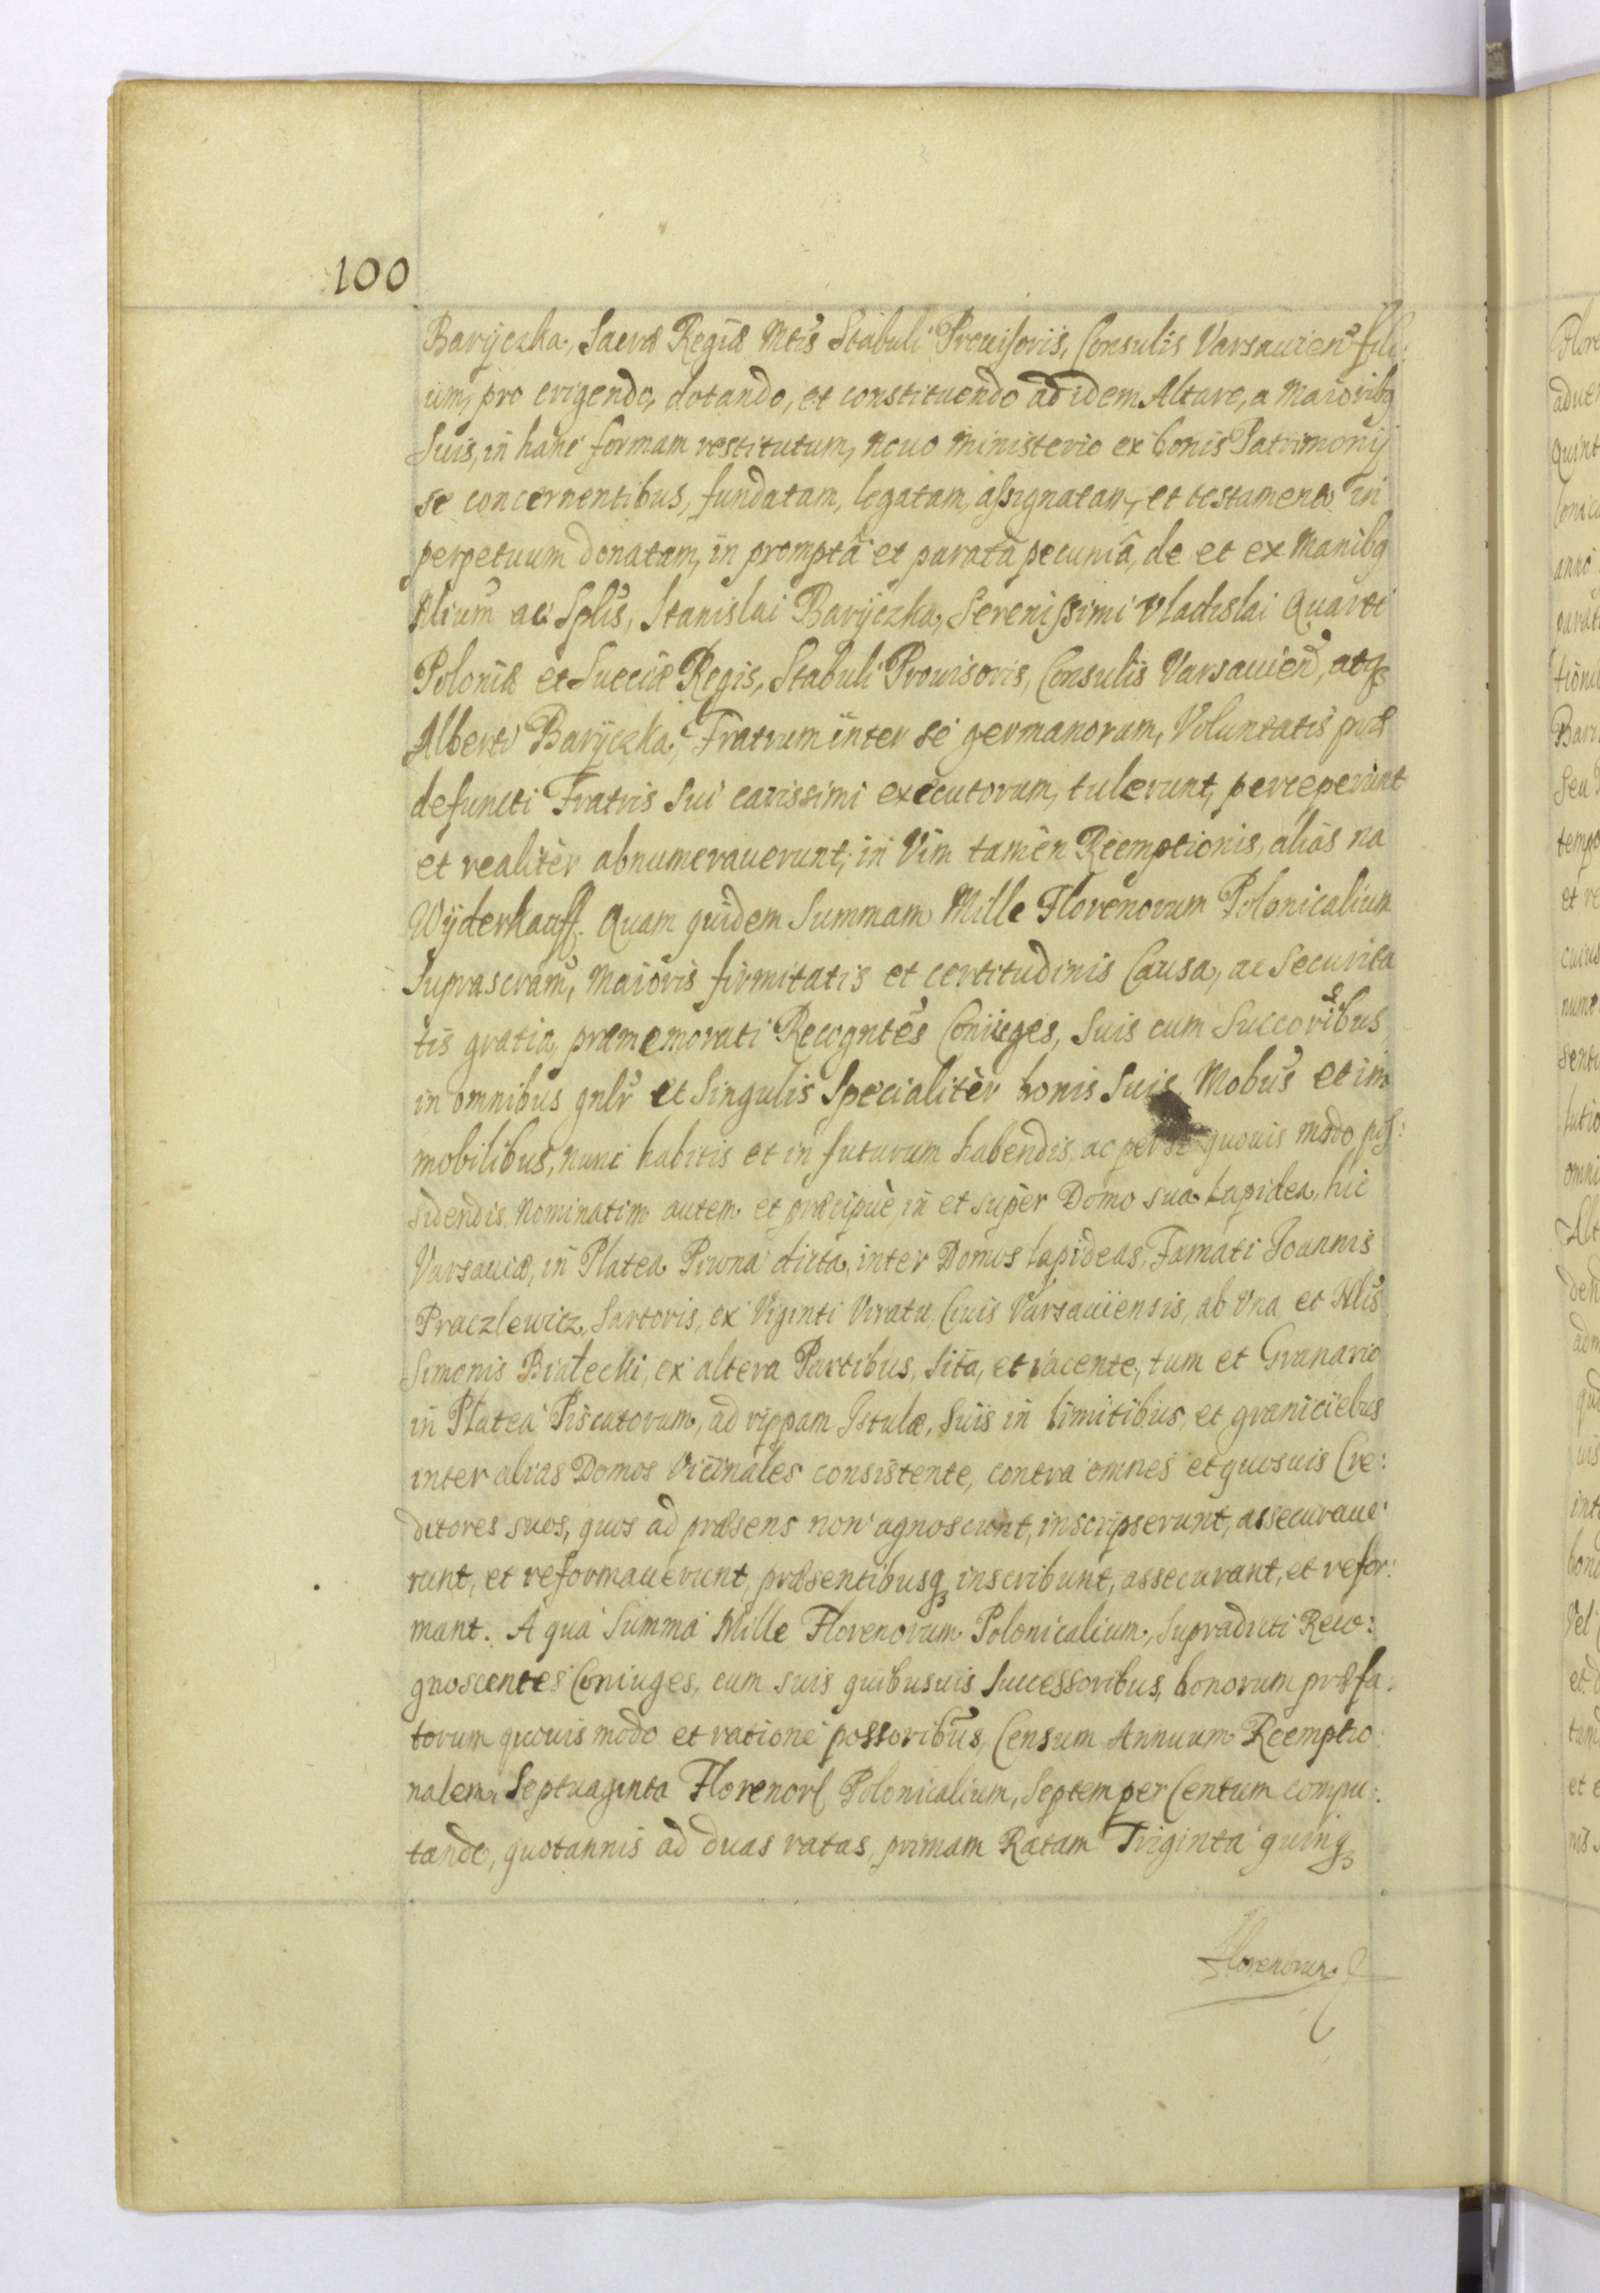 100
Baryczka, Sacræ Regiæ Mtis Stabuli Prouisoris, Consulis Varsauien fili:
um, pro erigendo, dotando, et constituendo ad idem Altare, a Maioribq
Suis, in hanc formam restitutum, nouo ministerio ex bonis Patrimonij
se concernentibus, fundatam, legatam, assignatam, et testamento in
perpetuum donatam, in promptâ et paratâ pecuniâ, de et ex Manibq
Nlium ac Splis, Stanislai Baryczka, Serenissimi Vladislai Quarti
Poloniæ et Sueciæ Regis, Stabuli Prouisoris, Consulis Varsauien, atq
Alberti Baryczka, Fratrum inter se germanorum, Voluntatis
defuncti Fratris Sui carissimi executorum, tulerunt, perceperunt
et realitèr abnumerauerunt, in Vim tamèn Reemptionis, aliàs na
Wyderkauff. Quam quidem Summam Mille Florenorum Polonicalium
Suprascram, Maioris firmitatis et certitudinis Causa, ac Securita
tis gratia, præmemorati Recogntes Coniuges, Suis cum Succoribus
in omnibus gnlr et Singulis Specialitèr bonis Suis Mobus et im
mobilibus, nunc habitis et in futurum habendis, ac per se quouis modo pos:
sidendis, Nominatim autem et præcipuè, in et supèr Domo sua Lapidea, hic
Varsauiæ, in Platea Piwna dicta, inter Domos lapideas, Famati Joannis
Praczlewicz, Sartoris, ex Viginti Viratu, Ciuis Varsauiensis, ab Vna et Nlis
Simonis Białecki, ex altera Partibus, Sita, et iacente, tum et Granario
in Platea Piscatorum, ad rippam Istulæ, Suis in limitibus, et graniciebus
inter alias Domos Vicinales consistente, contra omnes et quosuis Cre:
ditores suos, quos ad præsens non agnoscunt, inscripserunt, assecuraue:
runt, et reformauerunt, præsentibusq inscribunt, assecurant, et refor:
mant. A qua Summa Mille Florenorum Polonicalium, Supradicti Reco:
gnoscentes Coniuges, cum suis quibusuis Successoribus, bonorum præfa:
torum quouis modo et ratione possoribus, Censum Annuum Reemptio:
nalem, Septuaginta Florenor Polonicalium, Septem per Centum compu:
tando, quotannis ad duas ratas, primam Ratam Triginta quinq
Florenorum